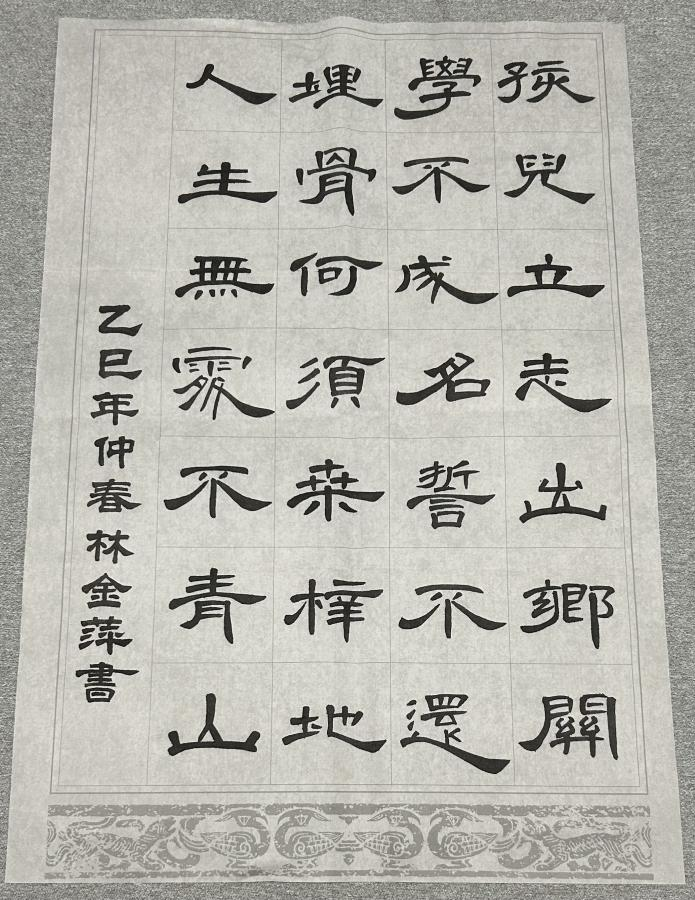 孩兒立志出鄉關
學不成名誓不還
埋骨何須桑梓地
人生無處不青山
乙巳年仲春林金萍書